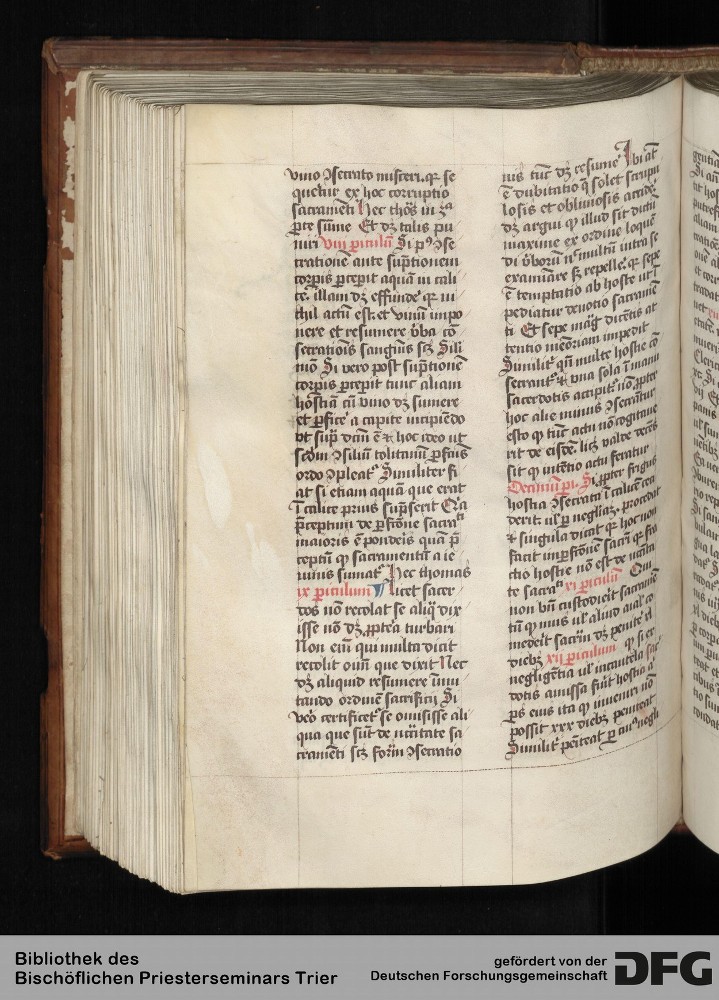 vino ɔsecrato misceri. qꝛ se
queret̉ ex hoc corruptio
sacramēti Hec thōs in 3ᵃ
ꝑte sūme Et dꝫ talis pu
niri viii ꝑiculū Si pꝰ ɔse
cratioē ante sūptionem
corꝑis ꝑcepit aquā in cali
ce. illam dꝫ effunde᷑ qꝛ ni
chil actū est. et vinū impo
nere et resumere v̉ba cō
secrationis sanguis scꝫ Sili
mō Si vero post sūptionē
corꝑis ꝑcepit tunc aliam
hostiā cū vino dꝫ sumere
et ꝑfice᷑ a capite incipiēdo
vt sup̄ dcm̄ ē ⁊ hoc ideo ut
scd̄m ɔsiliū tolitanū ꝑfc̄iōis
ordo ɔpleat᷑ Similiter fi
at si etiam aquā que erat
ī calice prius sūpserit Q̄ꝛ
p̄ceptum de ꝑfc̄ōne sacraᵗⁱ
maioris ē pondeis quā p̄
ceptū qꝙ sacramentū a ie
iunis sumat᷑ Hec thomas
ix ꝑiculum ¶ licet sacer
dos nō recolat se aliq̄ dix
isse nō dꝫ ꝓptēa turbari
Non eiī qui multa dicit
recolit oīa que dixit Nec
dꝫ aliquid resumere īmu
tando ordinē sacrificij Si
v̉o certificet᷑ se omisisse ali
qua que sūt de nc̄citate sa
cramēti scꝫ formā ɔsecratio
nis tūc dꝫ resume᷑ Ubi aūt
ē dubitatio q̄ solet scrupu
losis et obliuiosis accide᷑
dꝫ argui qꝙ illud sit dictū
maxime ex ordine loquē
di v̉borū nō multū intra se
examinare sꝫ repelle᷑. qꝛ sepe
ē temptatio ab hoste ut ī
pediatur deuotio sacramē
ti Et sepe mag̉ dicētis at
tentio memoriam impedit
Similit̉ qn̄ multe hostie cō
secrant᷑ ⁊ vna sola ī manu
sacerdotis accipit᷑ nō ꝓpter
hoc alie minus ɔsecrātur
esto qꝙ tūc actu nō cogitaue
rit de eisdē. licꝫ valde decēs
sit qꝙ intētio actu feratur
Decimū ꝑi. Si ꝓpter frigus
hostia ɔsecrata ī calicē ceci
derit. ul̓ ꝑ negligē. procedat
⁊ singula dicat qꝛ hoc non
facit imꝑfc̄ōnē sacri qꝛ fra
ctio hostie nō est de nc̄cita
te sacraᵗⁱ xi ꝑiculū Qui
non bn̄ custodierit sacramē
tū qꝙ mus ul̓ aliud aīal co
mederit sacrm̄ dꝫ penite᷑ xl
diebꝫ xii ꝑiculum qꝙ si ex
negligētia ul̓ incautela sac̉
dotis amissa fūit hostia a̓
ꝑs eius ita qꝙ inueniri nō
possit xxx diebꝫ peniteat
Similit̉ peniteat ꝑ cuiꝰ negli
Bibliothek des
Bischöflichen Priesterseminars Trier
gefördert von der
Deutschen Forschungsgemeinschaft
DFG